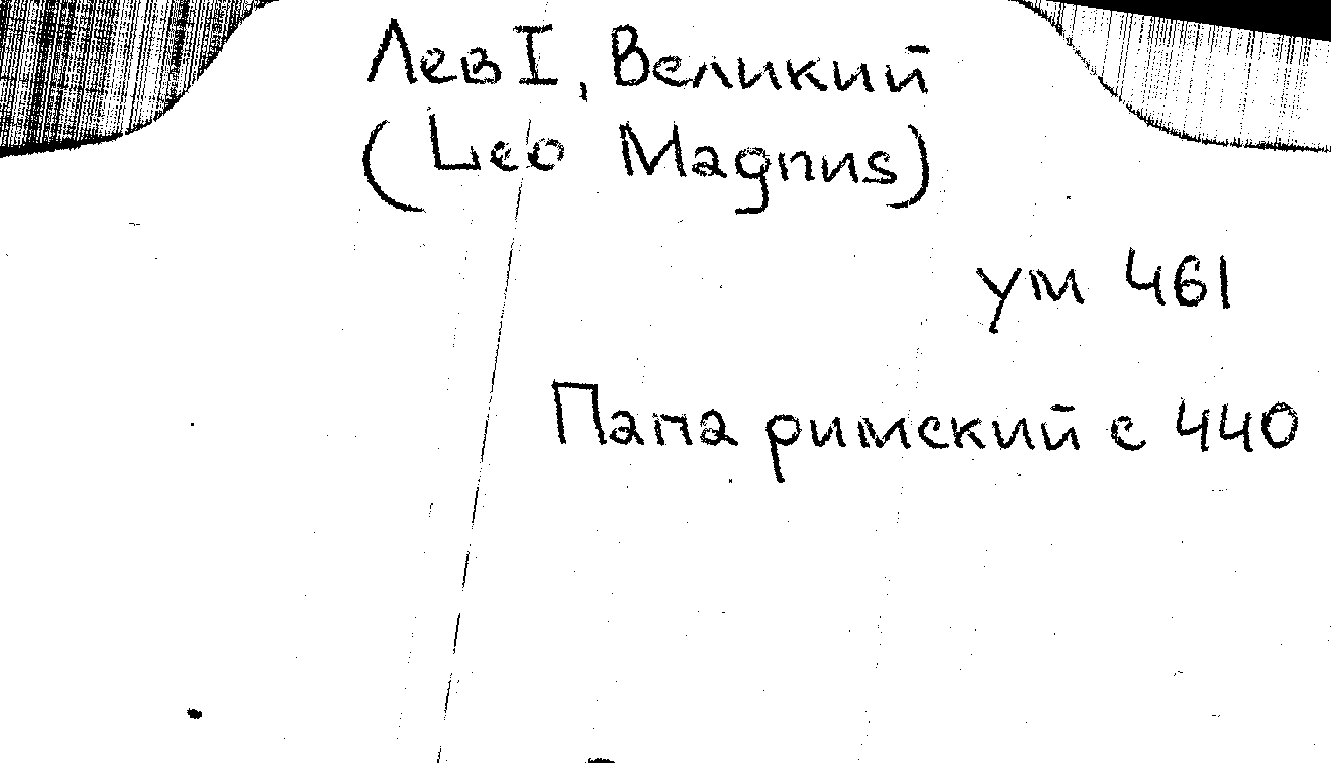 Лев I, Великий
(Leo Magnus)
ум 461
Папа римский с 440